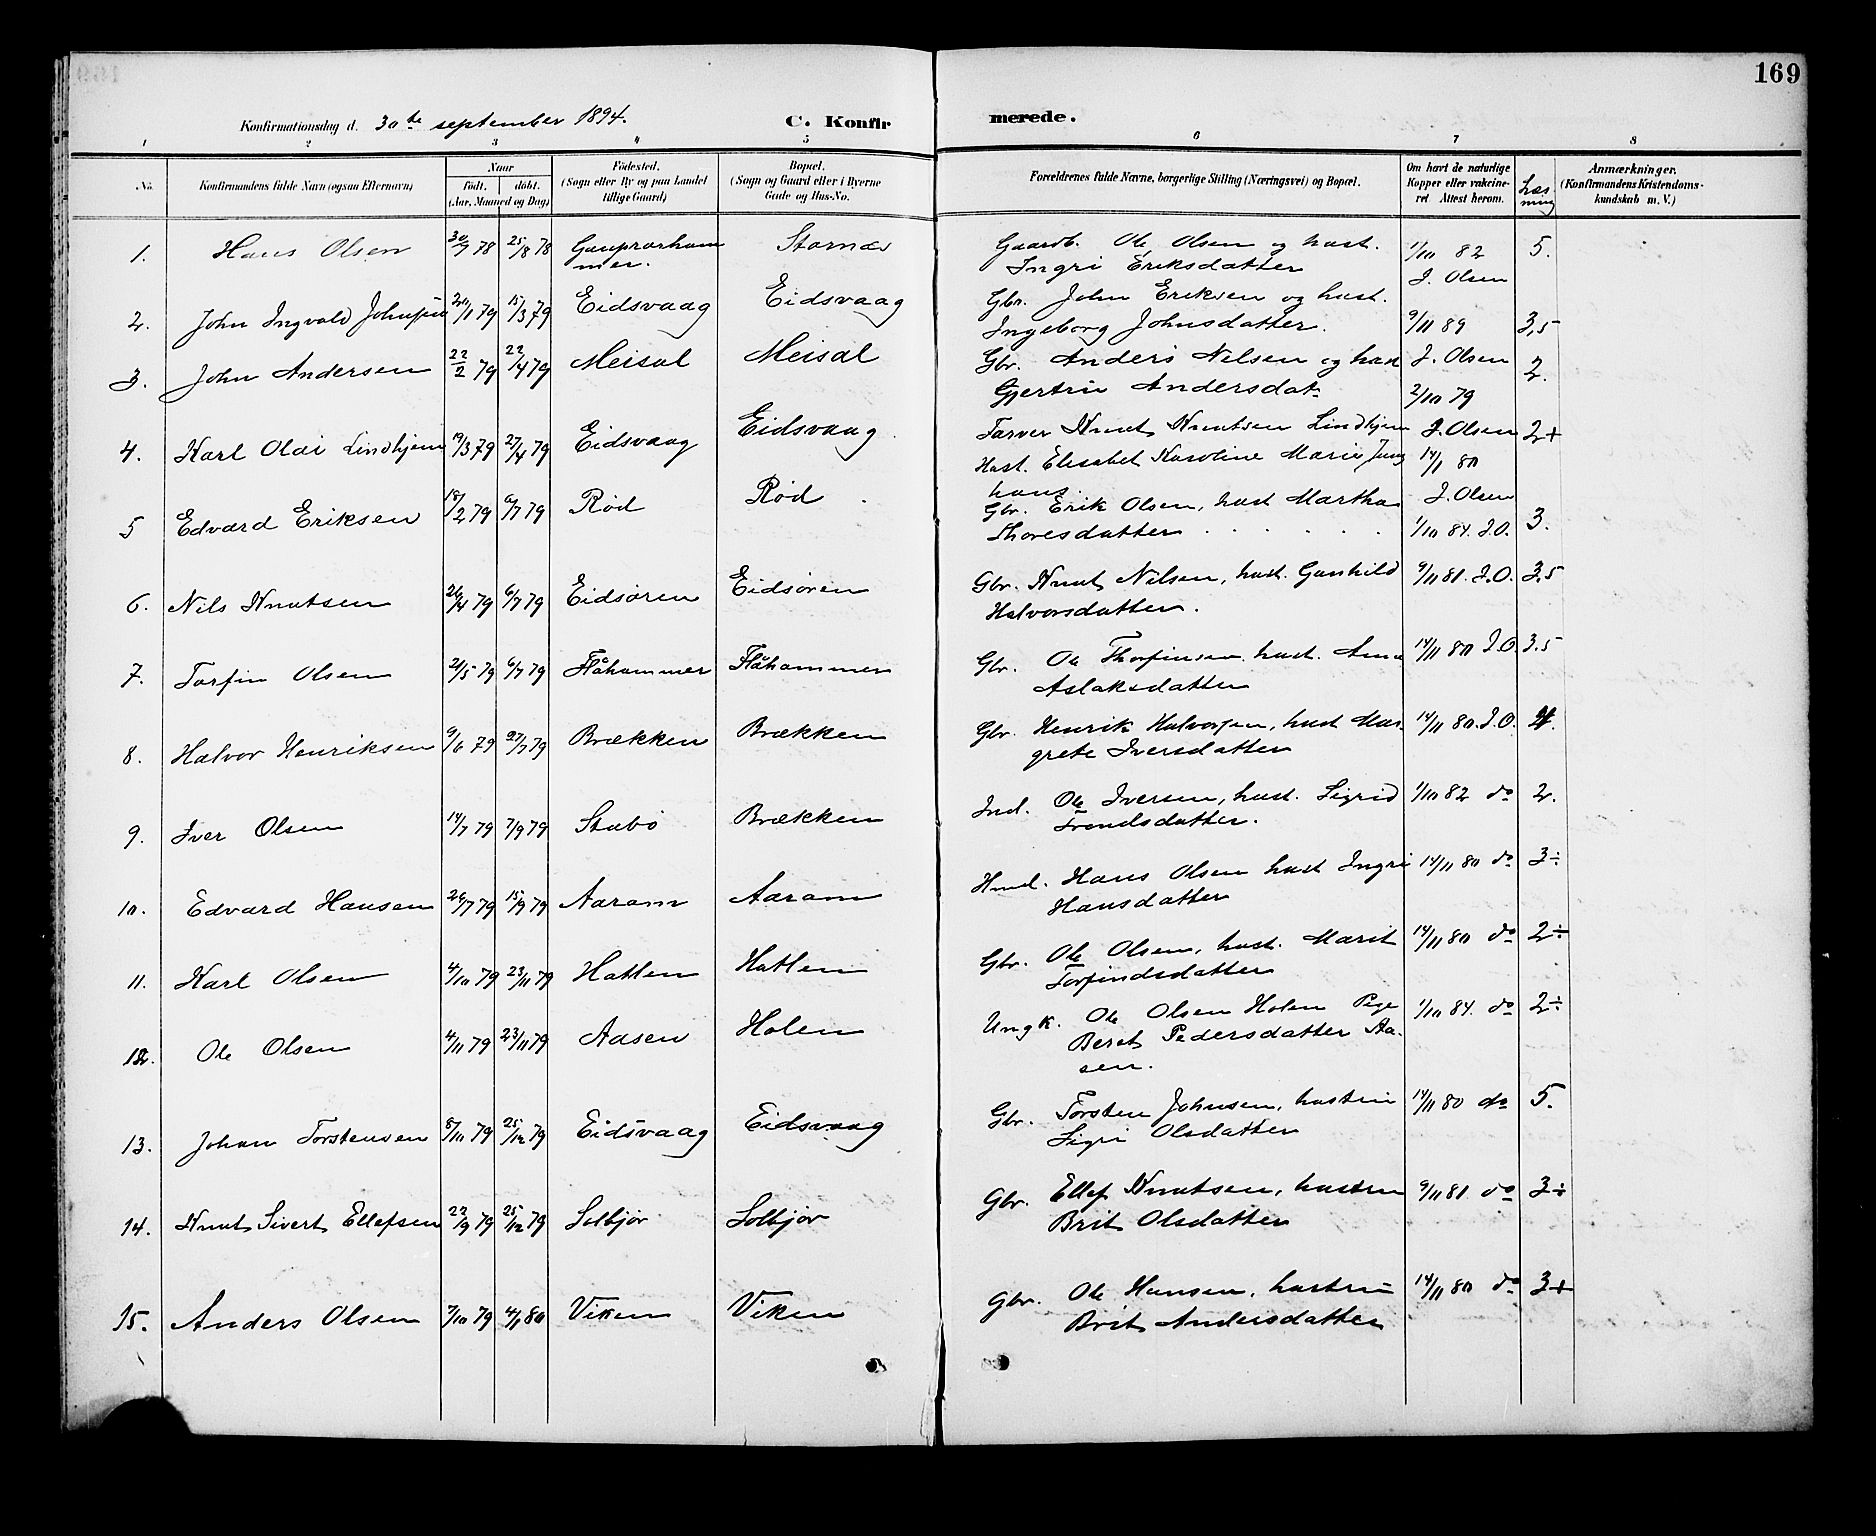 169
Konfirmationsdag d. 30te september 1894. C. Konfirmerede.
1 2 3 4 5 6 7 8
No. Konfirmandens fulde Navn (ogsaa Efternavn) Naar født. døbt. (Aar, Maaned og Dag) Fødested. (Sogn eller By og paa Landet tillige Gaard) Bopæl. (Sogn og Gaard eller i Byerne Gade og Hus-No. Forældrenes fulde Navne, borgerlige Stilling (Næringsvei) og Bopæl. Om havt de naturlige Kopper eller vakcineret Attest herom. Læsning Anmærkninger. (Konfirmandens Kristendomskundskab m. V.)
1. Hans Olsen 30/7 78 25/8 78 Gauprørhammer. Starnæs Gaardb. Ole Olsen og hust. 1/10 82 5.
Ingri Eriksdatter J. Olsen
2. John Ingvald Johnsen 20/1 79 15/3 79 Eidsvaag Eidsvaag Gbr. John Eriksen og hust.
Ingeborg Johnsdatter. 9/11 89 3,5
3. John Andersen 22/2 79 22/4 79 Meisal Meisal Gbr. Anders Nilsen og hust J. Olsen 2.
Gjertru Andersdat. 2/10 79
4. Karl Olai Lindhjem 19/3 79 27/4 79 Eidsvaag Eidsvaag Farver Knut Knutsen Lindhjem J. Olsen 2+
Hust. Elisabet Karoline Marie Jung 14/1 80
haus. J. Olsen
5 Edvard Eriksen 18/2 79 6/7 79 Rød Rød Gbr. Erik Olsen, hust Martha
Thoresdatter 1/10 84. J.O. 3.
6. Nils Knutsen 26/4 79 6/7 79 Eidsøren Eidsøren Gbr. Knut Nilsen, hust. Gunhild 9/11 81. J.O. 3,5
Halvorsdatter.
7. Torfin Olsen 21/5 79 6/7 79 Flåhammer Flåhammer Gbr. Ole Thorfinsen hust. Ane 14/11 80 J.O. 3.5
Aslaksdatter
8. Halvor Henriksen 9/6 79 27/7 79 Brækken Brækken Gbr. Henrik Halvorsen, hust Mar- 14/11 80. J.O. 4.
grete Iversdatter
9. Iver Olsen 14/7 79 7/9 79 Stubø Brækken Ind. Ole Iversen, hust. Sigrid 1/10 82 do 2.
Trondsdatter.
10. Edvard Hansen 26/7 79 15/9 79 Aaram Aaram Hmd. Hans Olsen hust Ingri 14/11 80 do 3÷
Hansdatter
11. Karl Olsen 4/10 79 23/11 79 Hatlen Hatlen Gbr. Ole Olsen, hust. Marit 14/11 80 do 2÷
Torfindsdatter
12. Ole Olsen 4/11 79 23/11 79 Aasen Holen Ungk. Ole Olsen Holen Pige 1/10 84. do 2÷
Beret Pedersdatter Aa-
sen.
13. Johan Torstensen 8/10 79 25/12 79 Eidsvaag Eidsvaag Gbr. Torsten Johnsen, hustru 14/11 80 do 5.
Sigri Olsdatter
14. Knut Sivert Ellefsen 22/9 79 25/12 79 Solbjør Solbjør Gbr. Ellef Knutsen, hustru 9/11 81 do 3÷
Brit Olsdatter
15. Anders Olsen 7/10 79 4/1 80 Viken Viken Gbr. Ole Hansen, hustru 14/11 80 do 3+
Brit Andersdatter